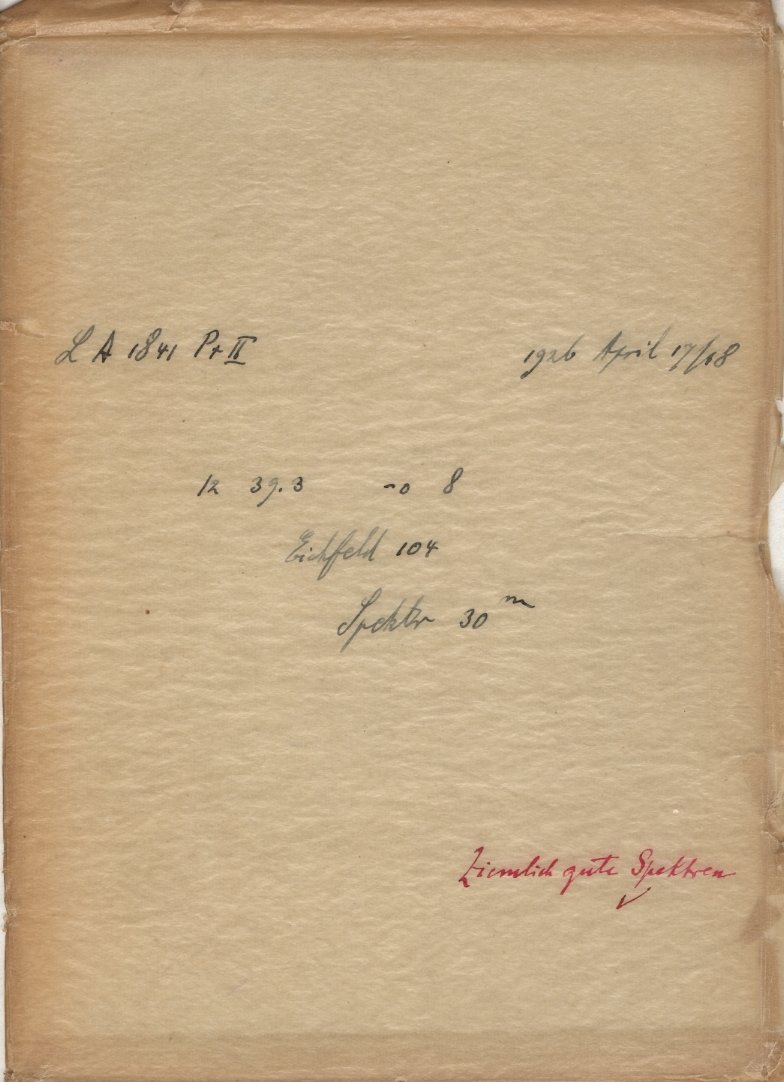 L A 1841 Pr II 1926 April 17/18
12 39.3 -0 8
Eichfeld 104
Spektr 30 m
Ziemlich gute Spektren
✓